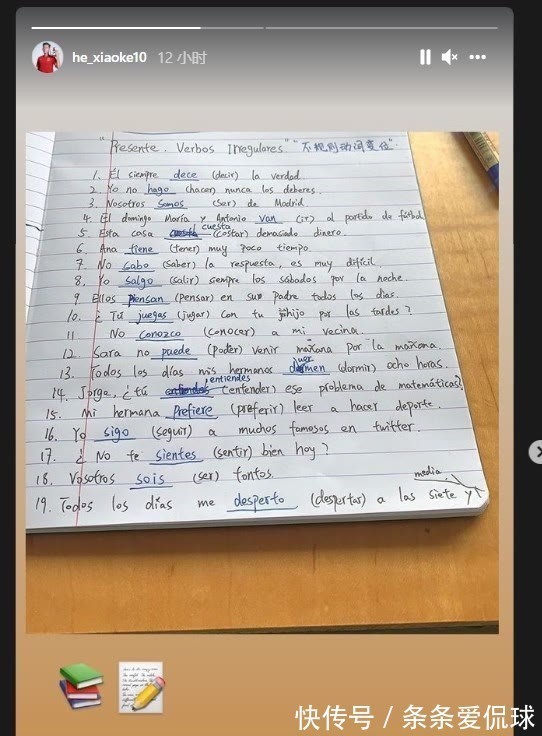 he_xiaoke10 12 小时
"Presente. Verbos Irregulares" "不规则动词变位"
1. Él siempre dece (decir) la verdad.
2. Yo no hago (hacer) nunca los deberes.
3. Nosotros Somos (ser) de Madrid.
4. El domingo María y Antonio van (ir) al partido de fútbol
5. Esta casa cuesta (costar) demasiado dinero.
6. Ana tiene (tener) muy poco tiempo.
7. No sabo (saber) la respuesta, es muy difícil.
8. Yo salgo (salir) siempre los sábados por la noche
9. Ellos piensan (pensar) en su padre todos los días.
10. ¿ Tú juegas (jugar) con tu hijo por las tardes?
11 No conozco (conocar) a mi vecina.
12. Sara no puede (poder) venir mañana por la mañana.
13. Todos los días mis hermanos duermen (dormir) ocho horas.
14. Jorge, ¿tú entiendes (entender) ese problema de matemáticas?
15. Mi hermana Prefiere (preferir) leer a hacer deporte.
16. Yo sigo (seguir) a muchos famosos en twitter.
17. ¿ No te sientes (sentir) bien hoy?
18. Vosotros sois (ser) tontos.
19. Todos los días me desperto (despertar) a las siete y media
快传号 / 条条爱侃球